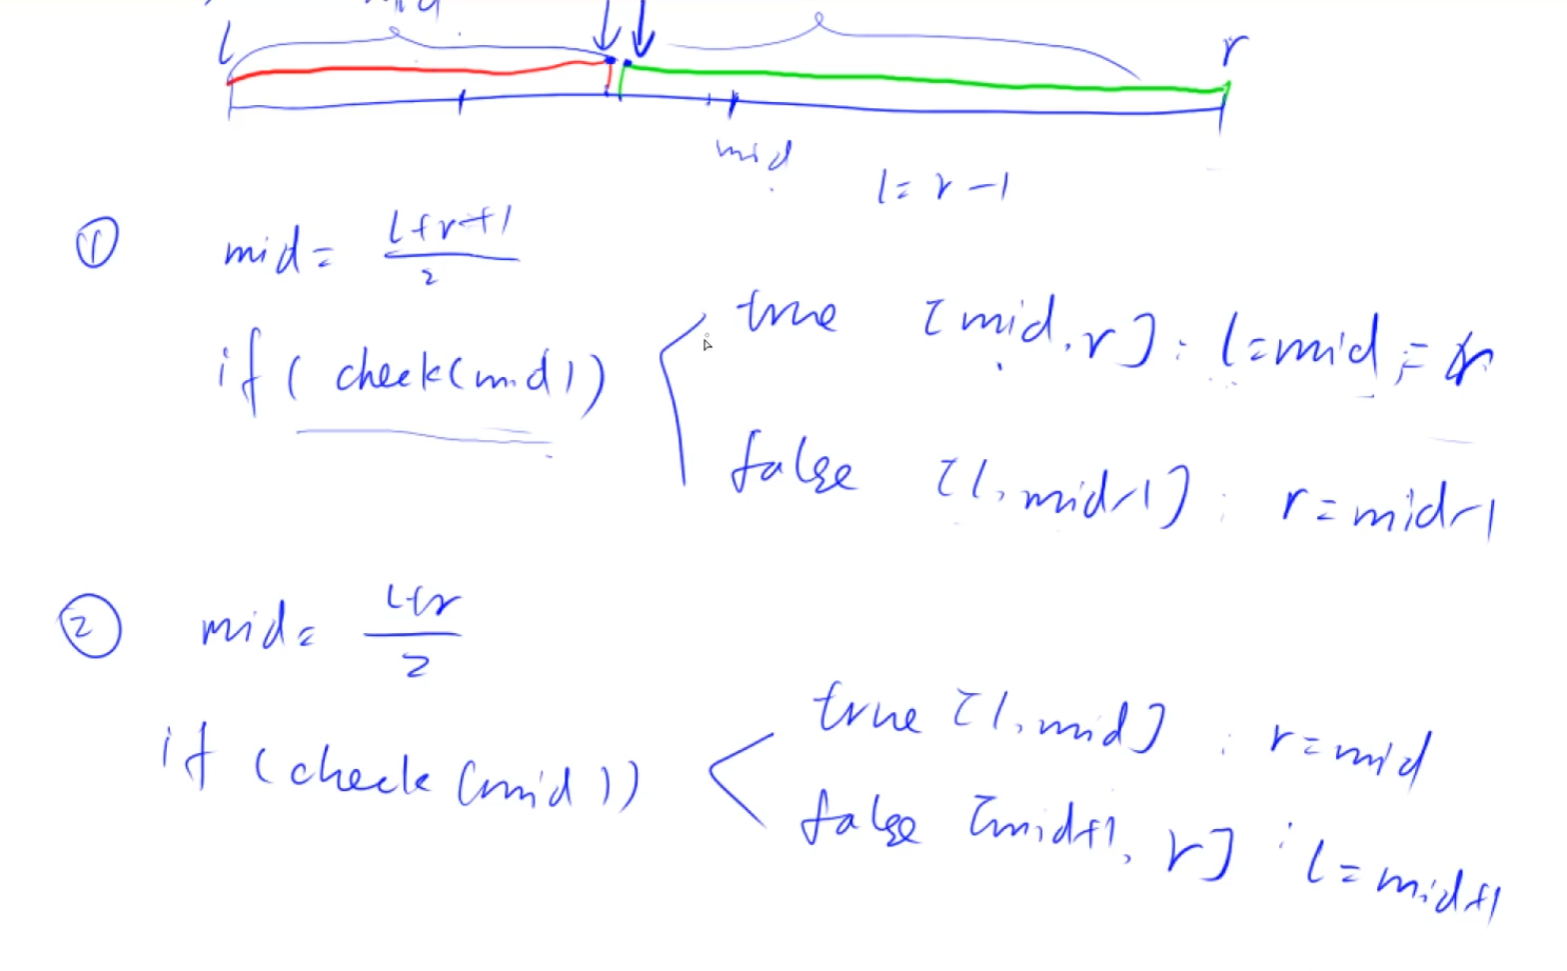 l r
mid
l = r - 1
① mid = (l+r+1)/2
if ( check(mid)) true [mid, r] : l=mid = r
false [l, mid-1] : r=mid-1
② mid = (l+r)/2
if (check (mid)) true [l, mid] : r=mid
false [mid+1, r] : l=mid+1